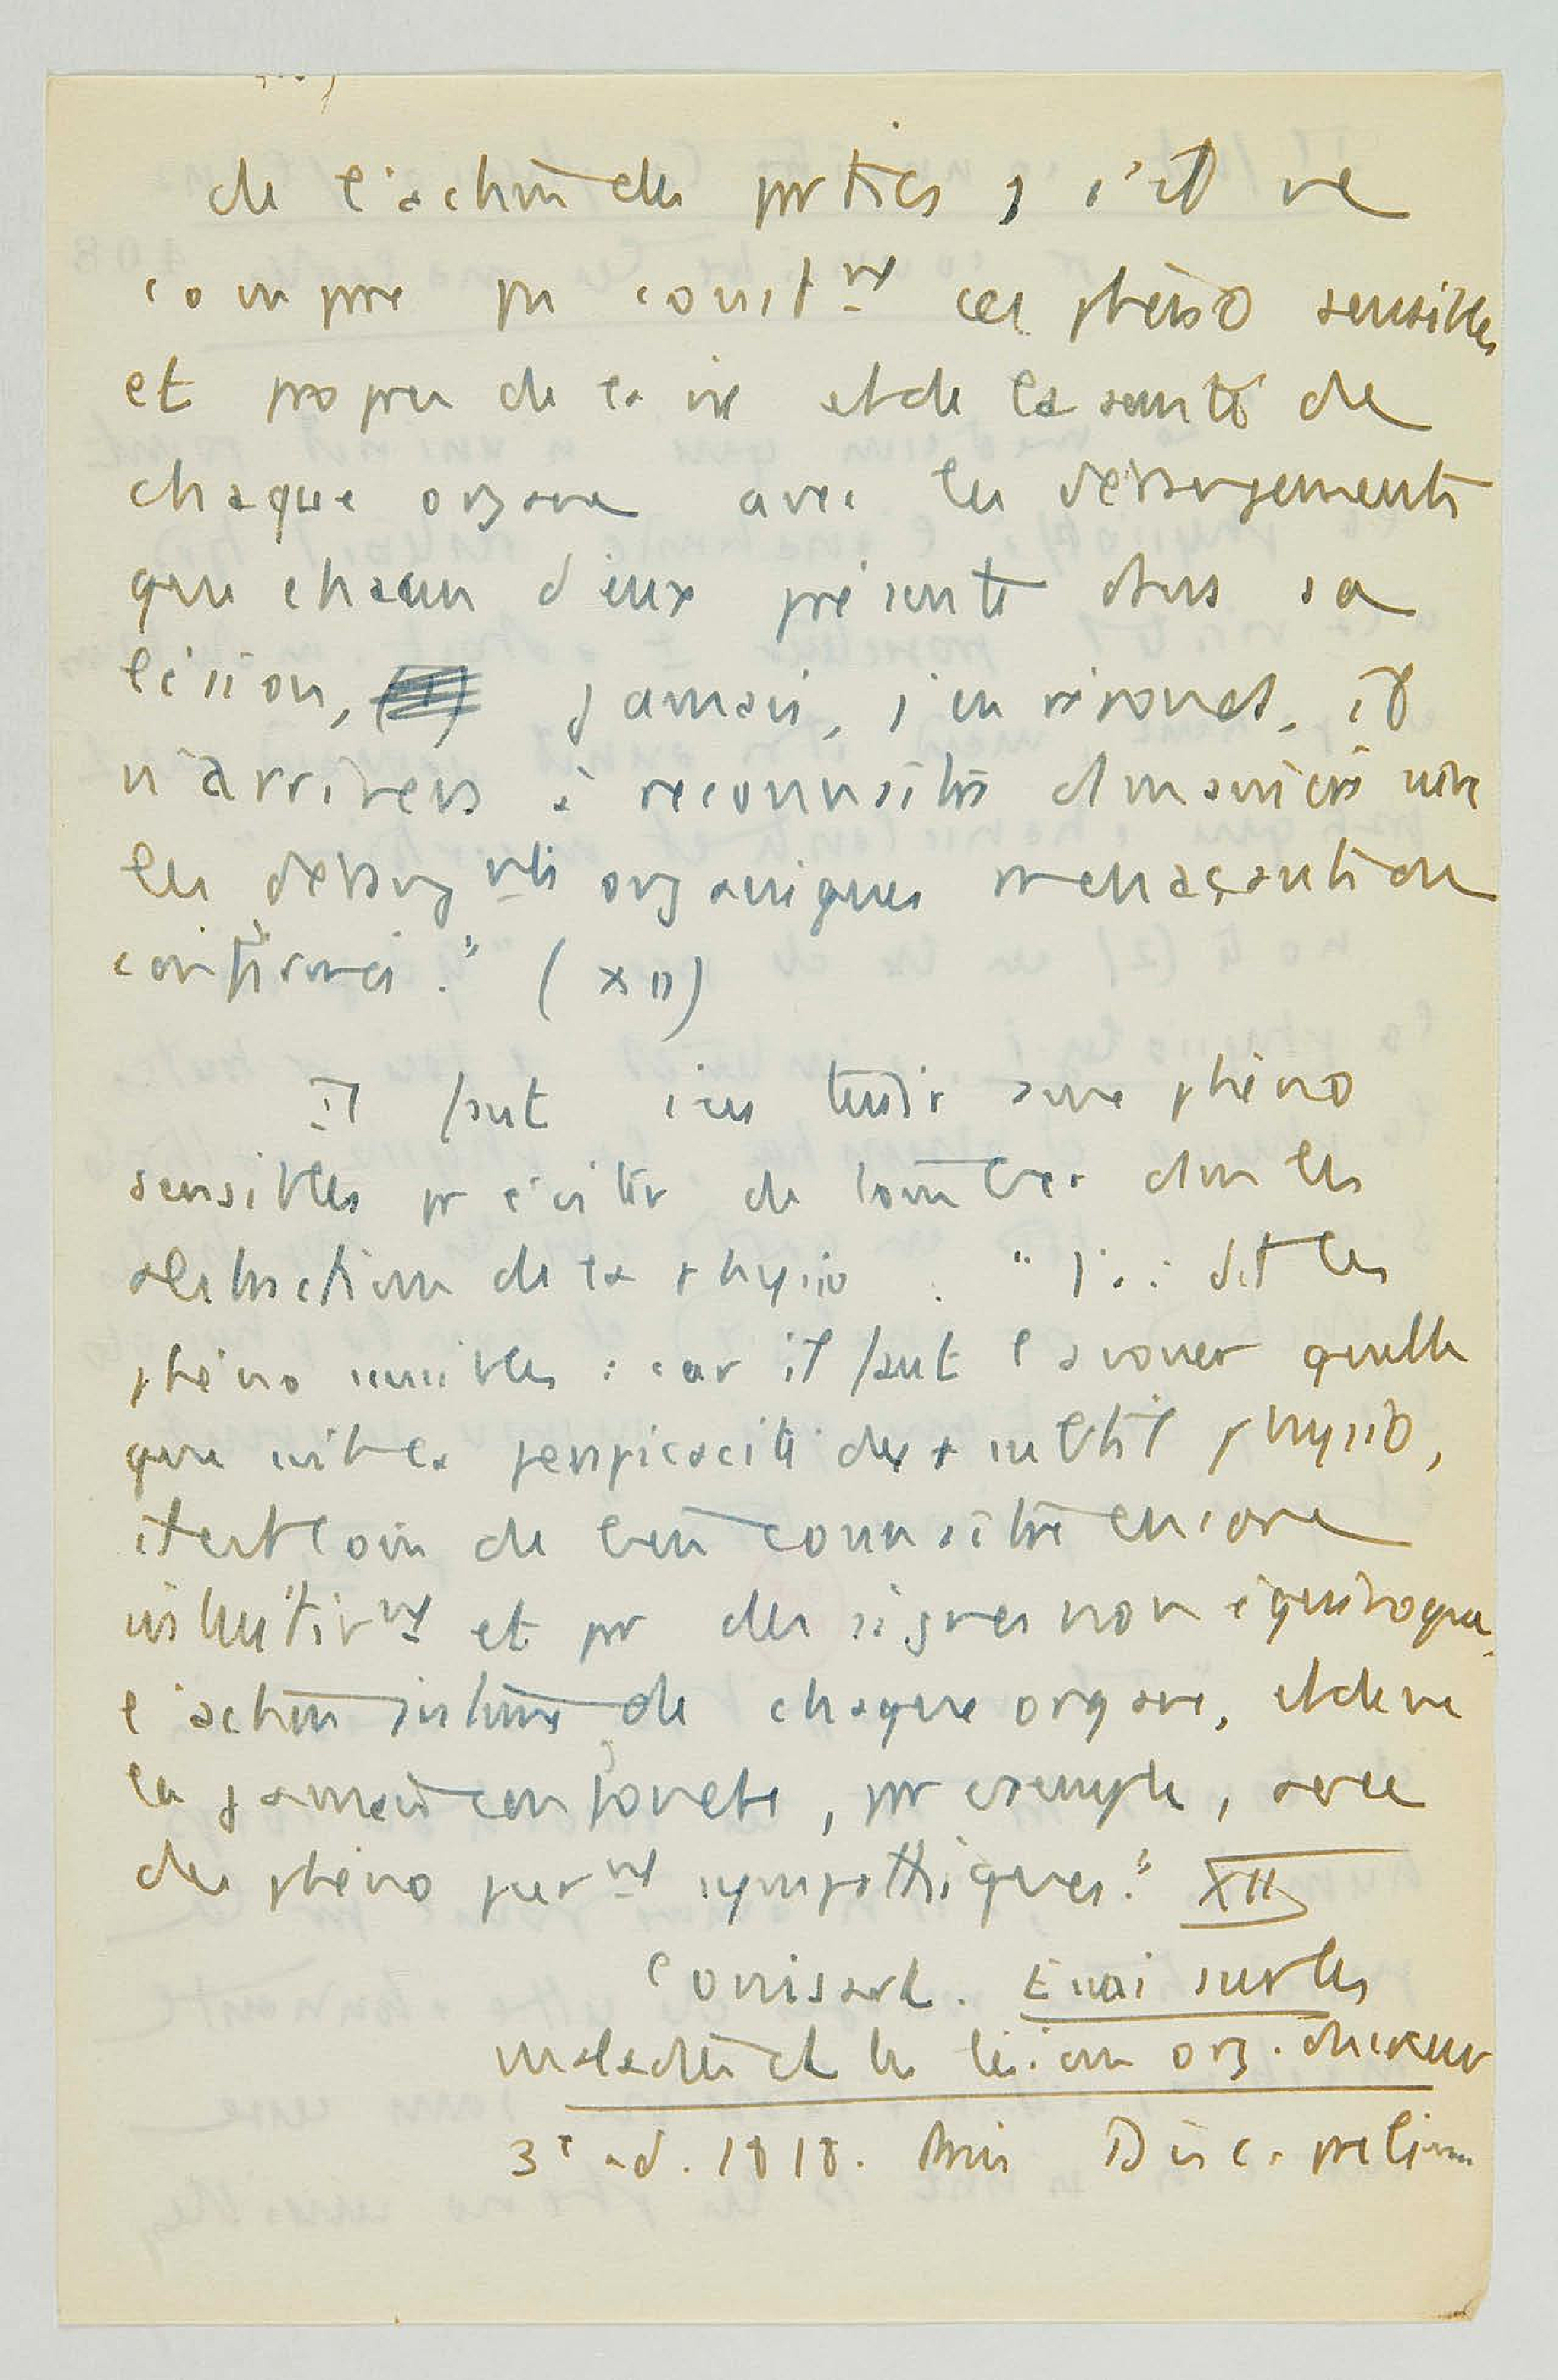 de l'action des parties, s'il ne
compare pas const^nt ces phéno sensibles
et propres de la vie et de la santé de
chaque organe avec les dérangements
que chacun d'eux présente dans sa
lésion, jamais, j'en réponds, il
n'arrivera à reconnaître d'manière utile
les dérang^nts organiques menaçants ou
confirmés." (XII)
Il faut s'en tenir aux phéno
sensibles pr éviter de tomber dans les
abstractions de la physio. "J'ai dit les
phéno sensibles : car il faut l'avouer quelle
que soit la perspicacité du + subtil physio,
il est loin de bien connaître encore
intuitiv^nt et par des signes non équivoques
l'action intime de chaque organe, et de ne
la jamais confondre, par exemple, avec
des phéno pur^nt sympathiques." XII
Corvisart. Essai sur les
maladies et les lésions org. du cœur
3e ed. 1818. Disc. prélim